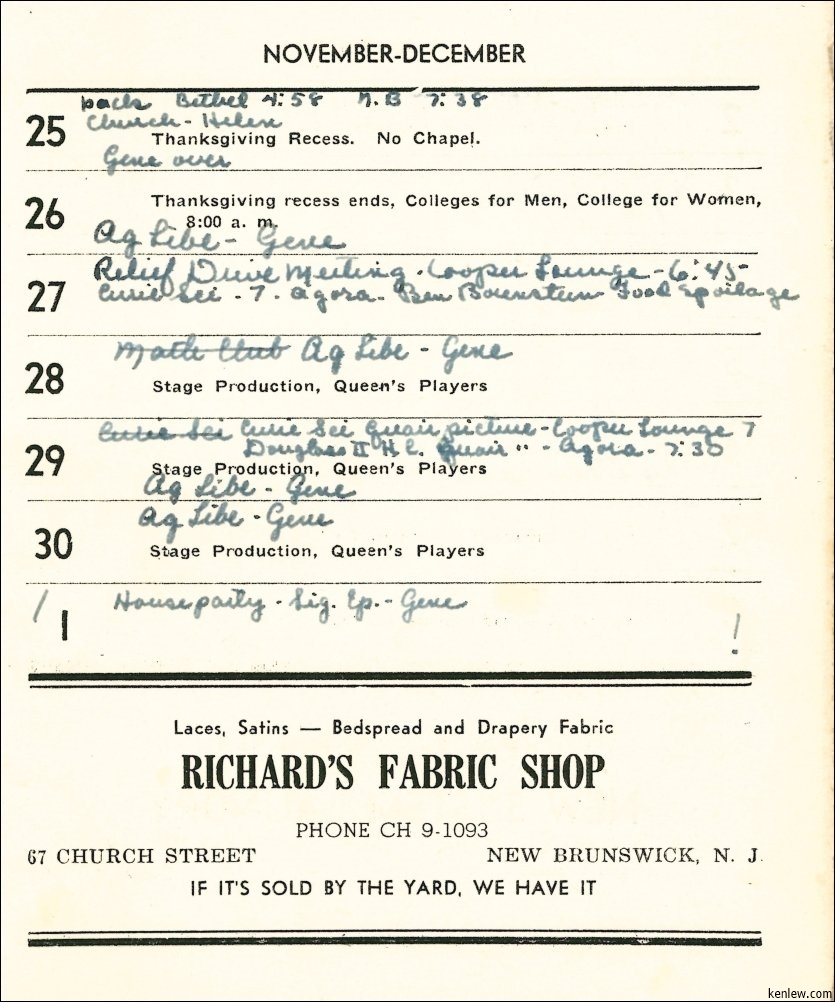 NOVEMBER-DECEMBER
back Bethel 4:58 N.B 7:38
25 Church - Helen
Thanksgiving Recess. No Chapel.
Gene over
Thanksgiving recess ends, Colleges for Men, College for Women,
26 8:00 a. m.
Ag Libe - Gene
Relief Drive Meeting - Cooper Lounge - 6:45
27 Curie Sci - 7. Agora - Ben Food Spoilage
Math Club Ag Libe - Gene
28 Stage Production, Queen's Players
Curie Sci Curie Sci Quair picture - Cooper Lounge 7
Douglass II H.E. Quair " - Agora - 7:30
29 Stage Production, Queen's Players
Ag Libe - Gene
Ag Libe - Gene
30 Stage Production, Queen's Players
/ Houseparty - Sig. Ep. - Gene
1 !
Laces, Satins — Bedspread and Drapery Fabric
RICHARD'S FABRIC SHOP
PHONE CH 9-1093
67 CHURCH STREET NEW BRUNSWICK, N. J.
IF IT'S SOLD BY THE YARD, WE HAVE IT
kenlew.com